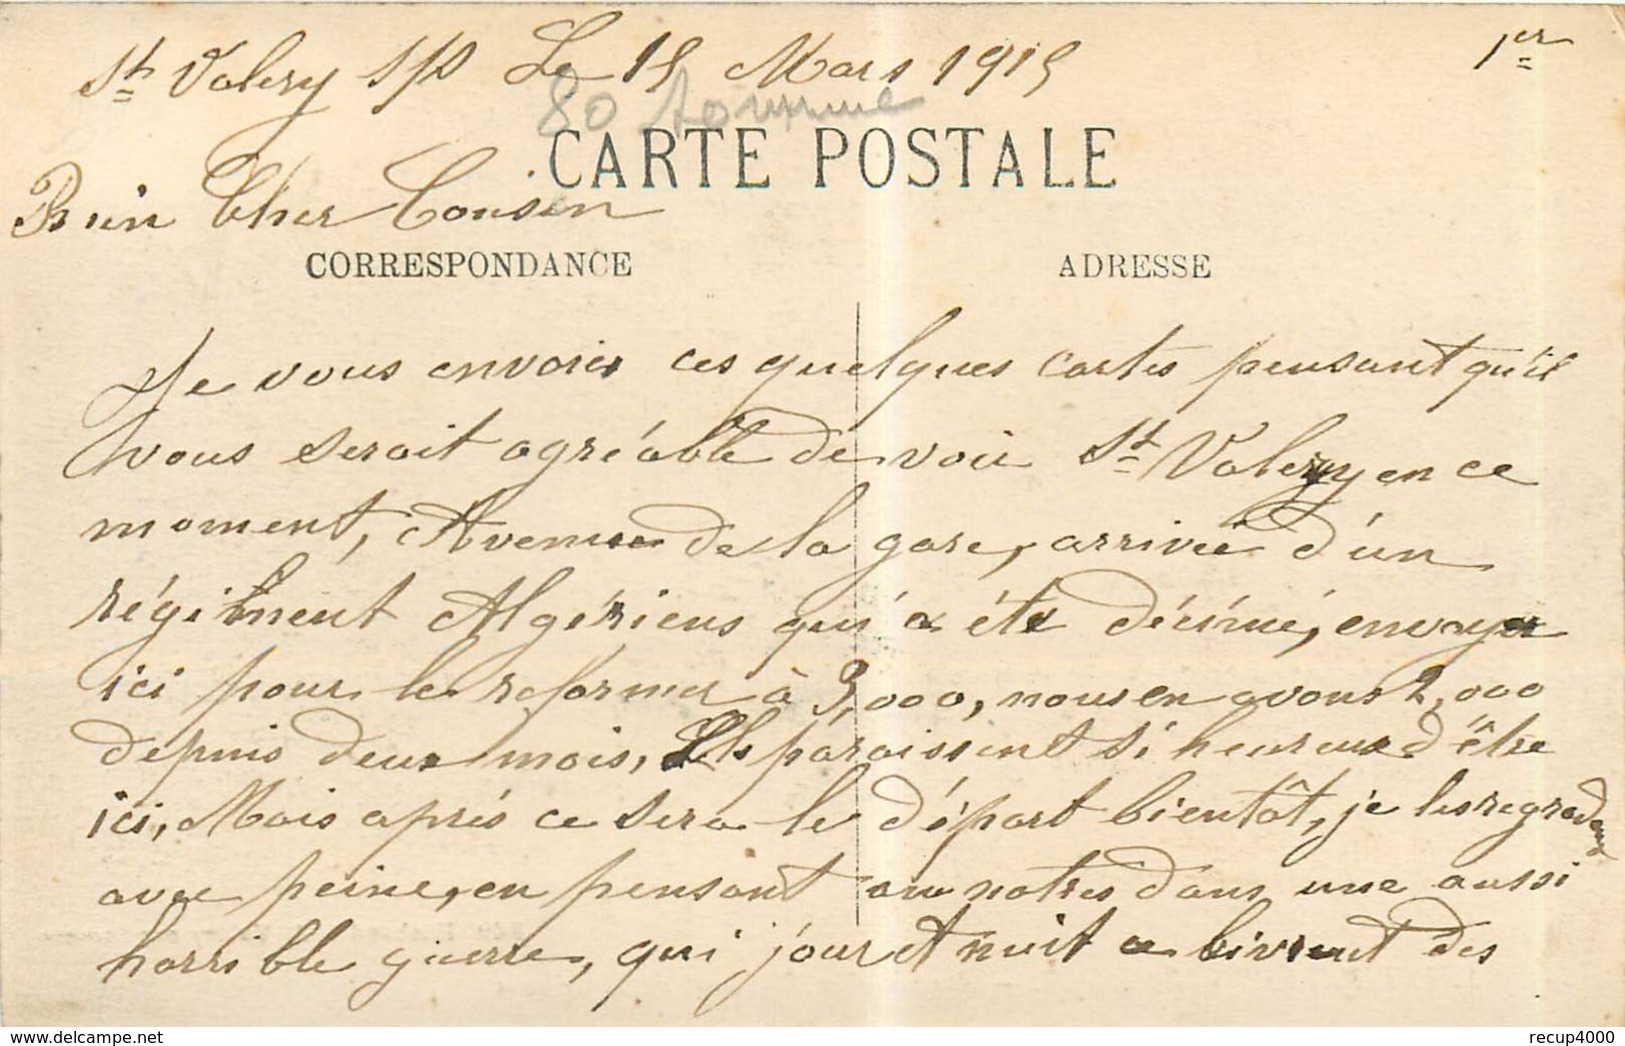 St Valery s/s Le 15 Mars 1915
1er
80 Somme
CARTE POSTALE
Bien Cher Cousin
CORRESPONDANCE
ADRESSE
Je vous envois ces quelques cartes pensant qu'il
vous serait agréable de voir St Valery en ce
moment, Avenue de la gare, arrivée d'un
régiment Algériens qui a été décimé, envoyer
ici pour le reformer à 3,000, nous en avons 2,000
depuis deux mois, Ils paraissent si heureux d'être
ici, Mais après ce sera le départ bientôt, je les regardent
avec peine, en pensant au notres dans une aussi
horrible guerre, qui jour et nuit livrent des
recup4000
www.delcampe.net